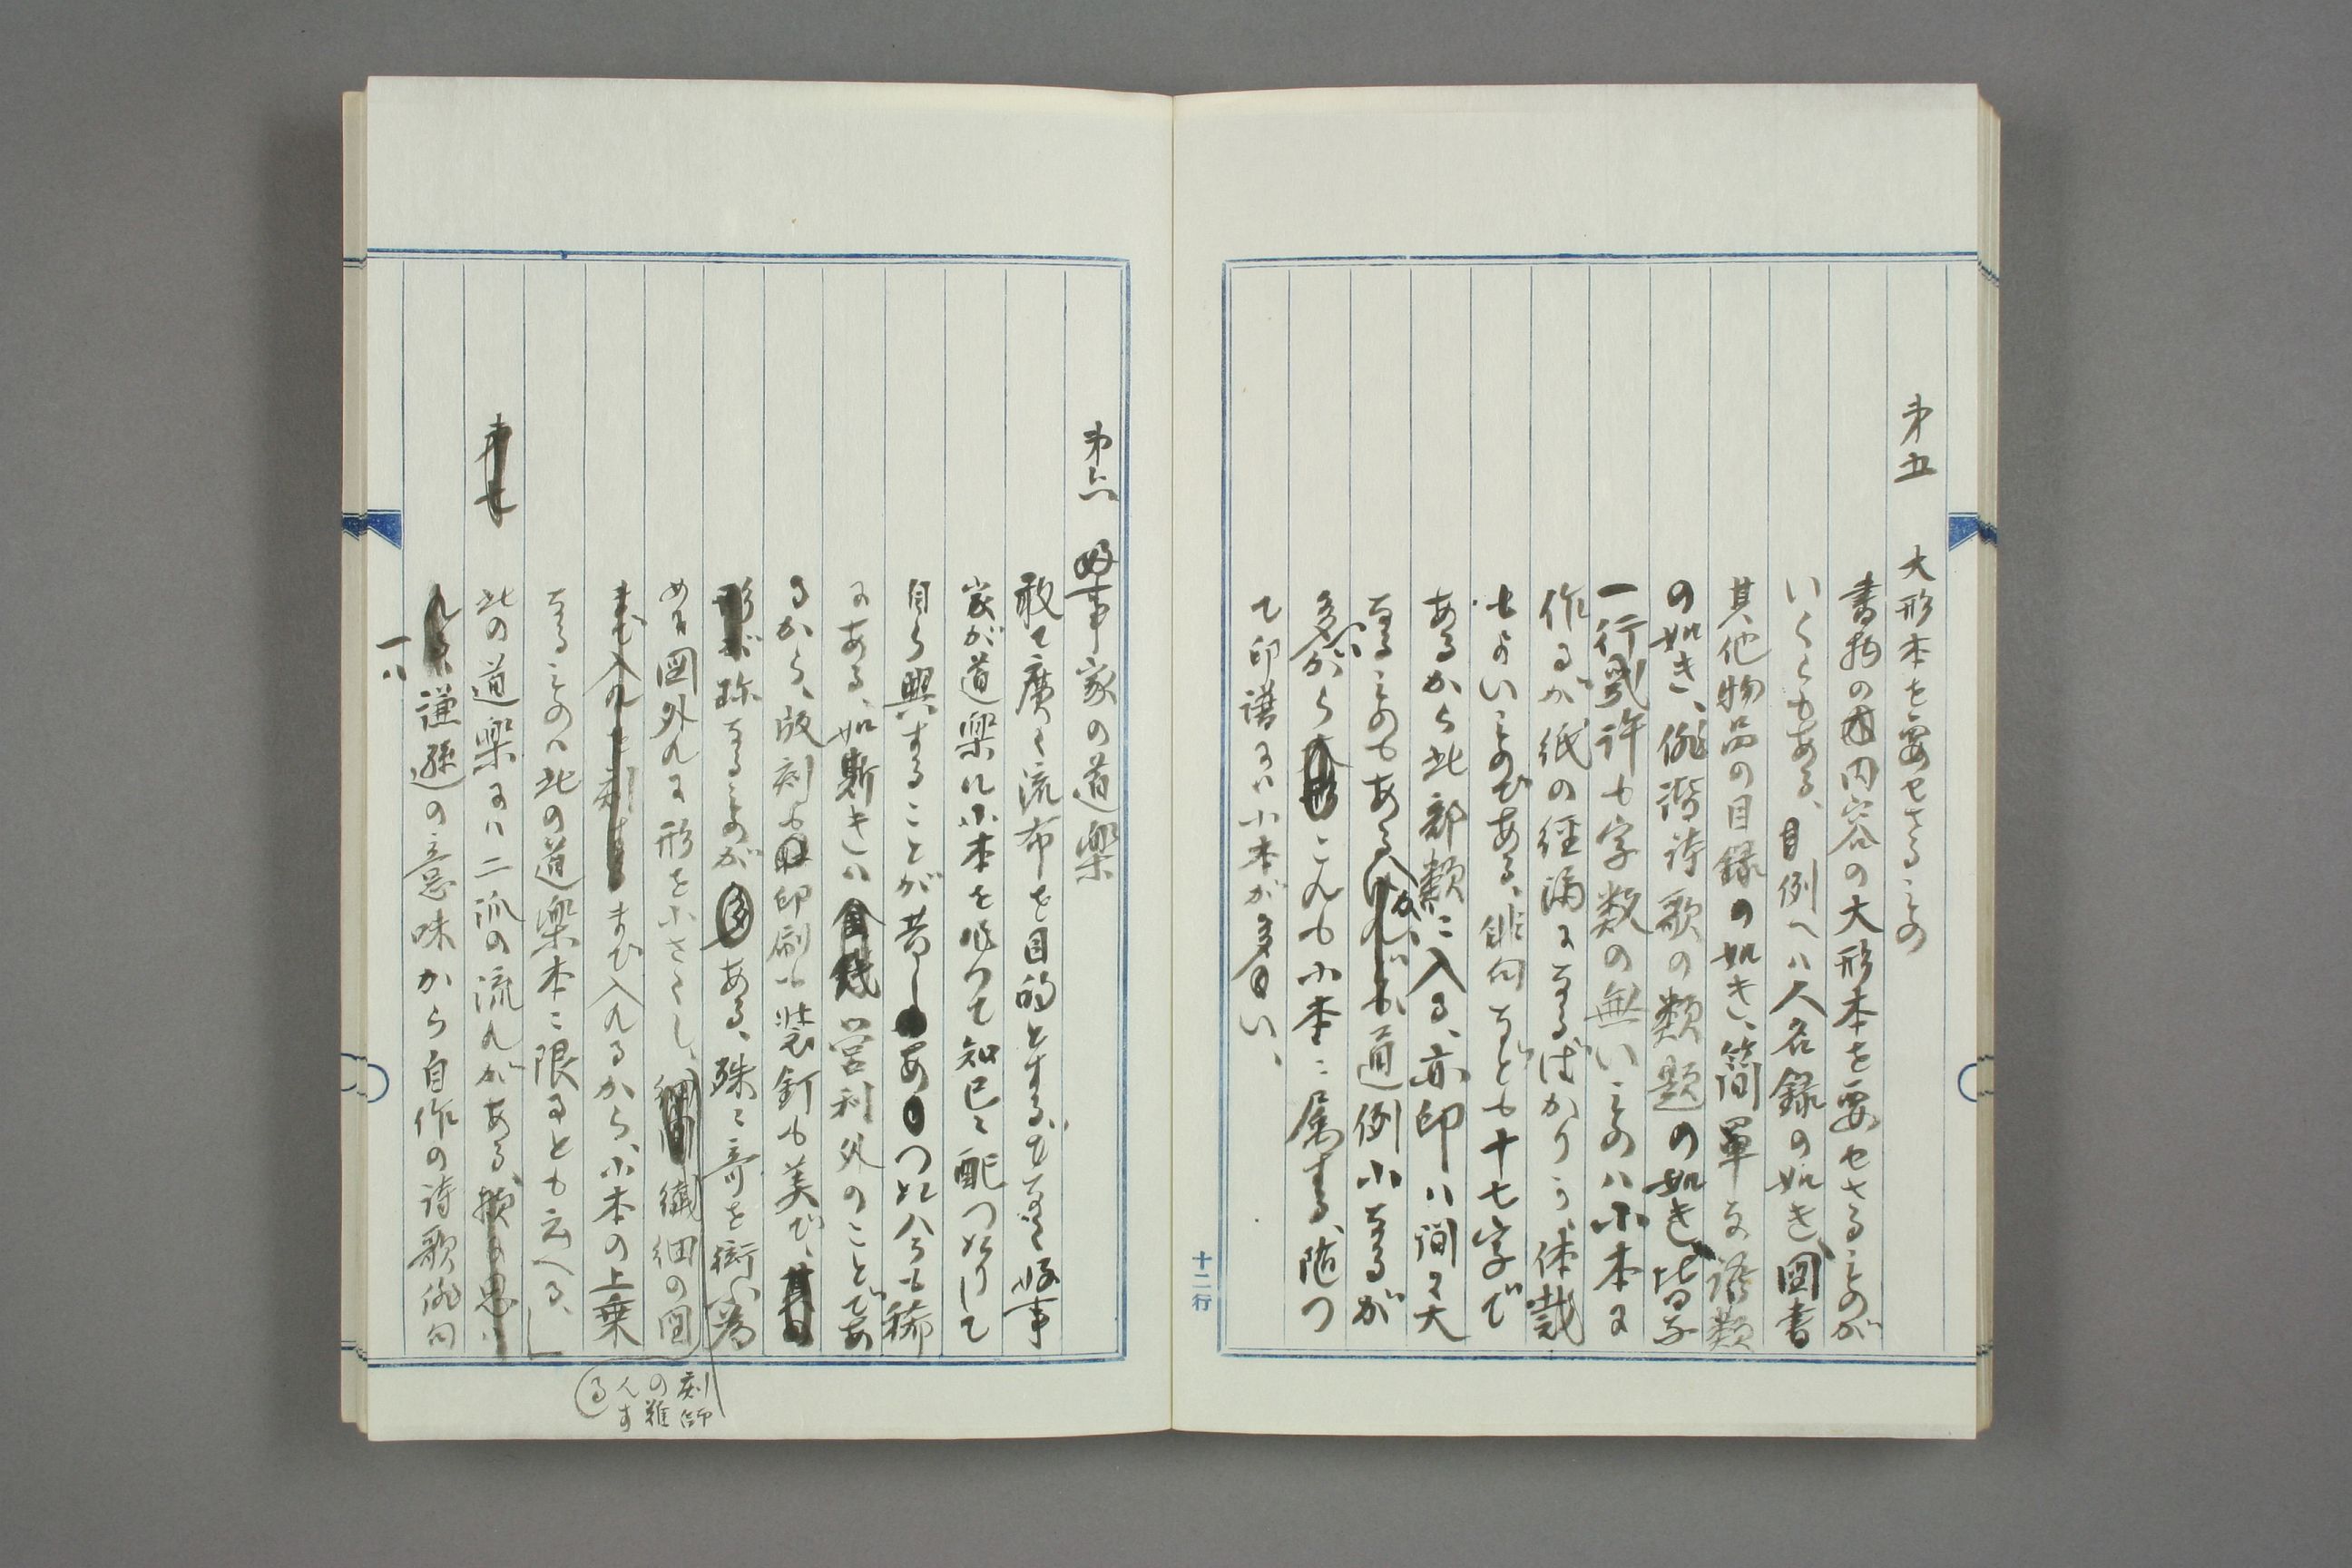 第五 大形本を要せざるもの
書物の内容の大形本を要せざるものが
いくらもある、例へハ人名録の如き、図書
其他物品の目録の如き、簡単な語類
の如き、俳諧詩歌の類題の如き、皆な
一行幾許も字数の無いものハ小本に
作るが紙の経済になるばかりか、体裁
もよいものである、俳句なども十七字で
あるから此部類に入る、亦印ハ間々大
なるものもあるが通例小なるが
多いから これも小本に属する、随つ
て印譜には小本が多い、
十二行
第六 好事家の道楽
敢て廣く流布を目的とするでなく好事
家が道楽に小本を作つて知己に配つたりして
自ら興することが昔しあつた今も稀
にある、如斯きハ 営利外のことであ
るから、版刻も印刷も装釘も美で、
珍なるものが ある、殊に奇を衒ふ為
めに図外れに形を小さくし、繊細の図
刻師の難んする
まで入れるから、小本の上乗
なるものハ此の道楽本に限るとも云へる、
此の道楽にハ二派の流れがある、
一ハ謙遜の意味から自作の詩歌俳句